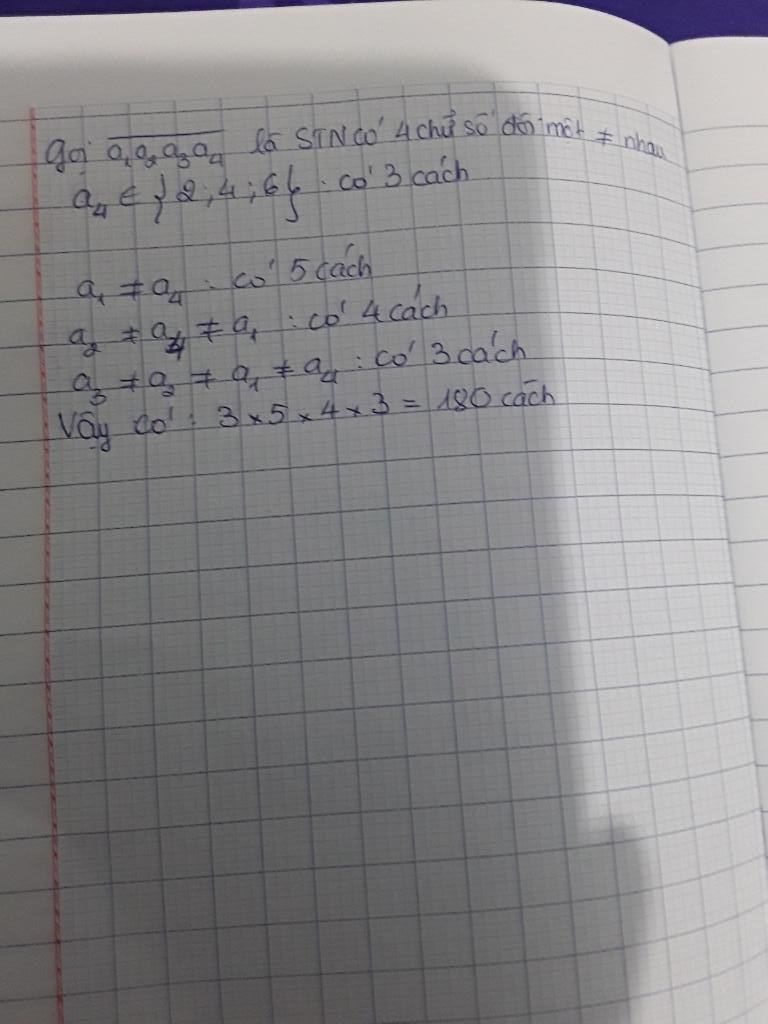 Gọi a₁a₂a₃a₄ là STN có 4 chữ số đôi một ≠ nhau
a₄ ∈ {2;4;6} : có 3 cách
a₁ ≠ a₄ : có 5 cách
a₂ ≠ a₄ ≠ a₁ : có 4 cách
a₃ ≠ a₂ ≠ a₁ ≠ a₄ : có 3 cách
Vậy có : 3 × 5 × 4 × 3 = 180 cách